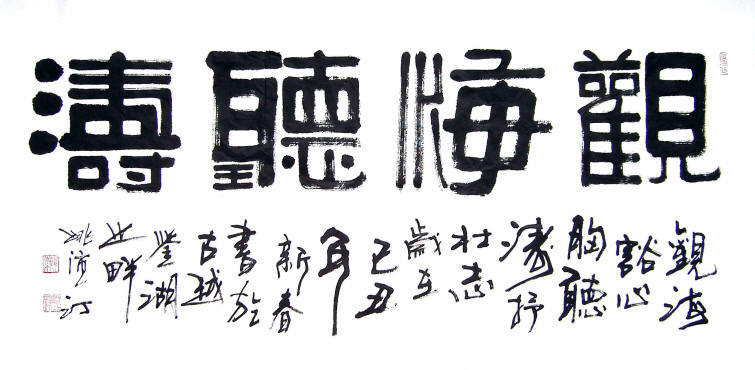 觀海聽濤
觀海
豁心
胸聽
濤抒
壯志
歲在
己丑
年
新春
書於
古越
鑒湖
之畔